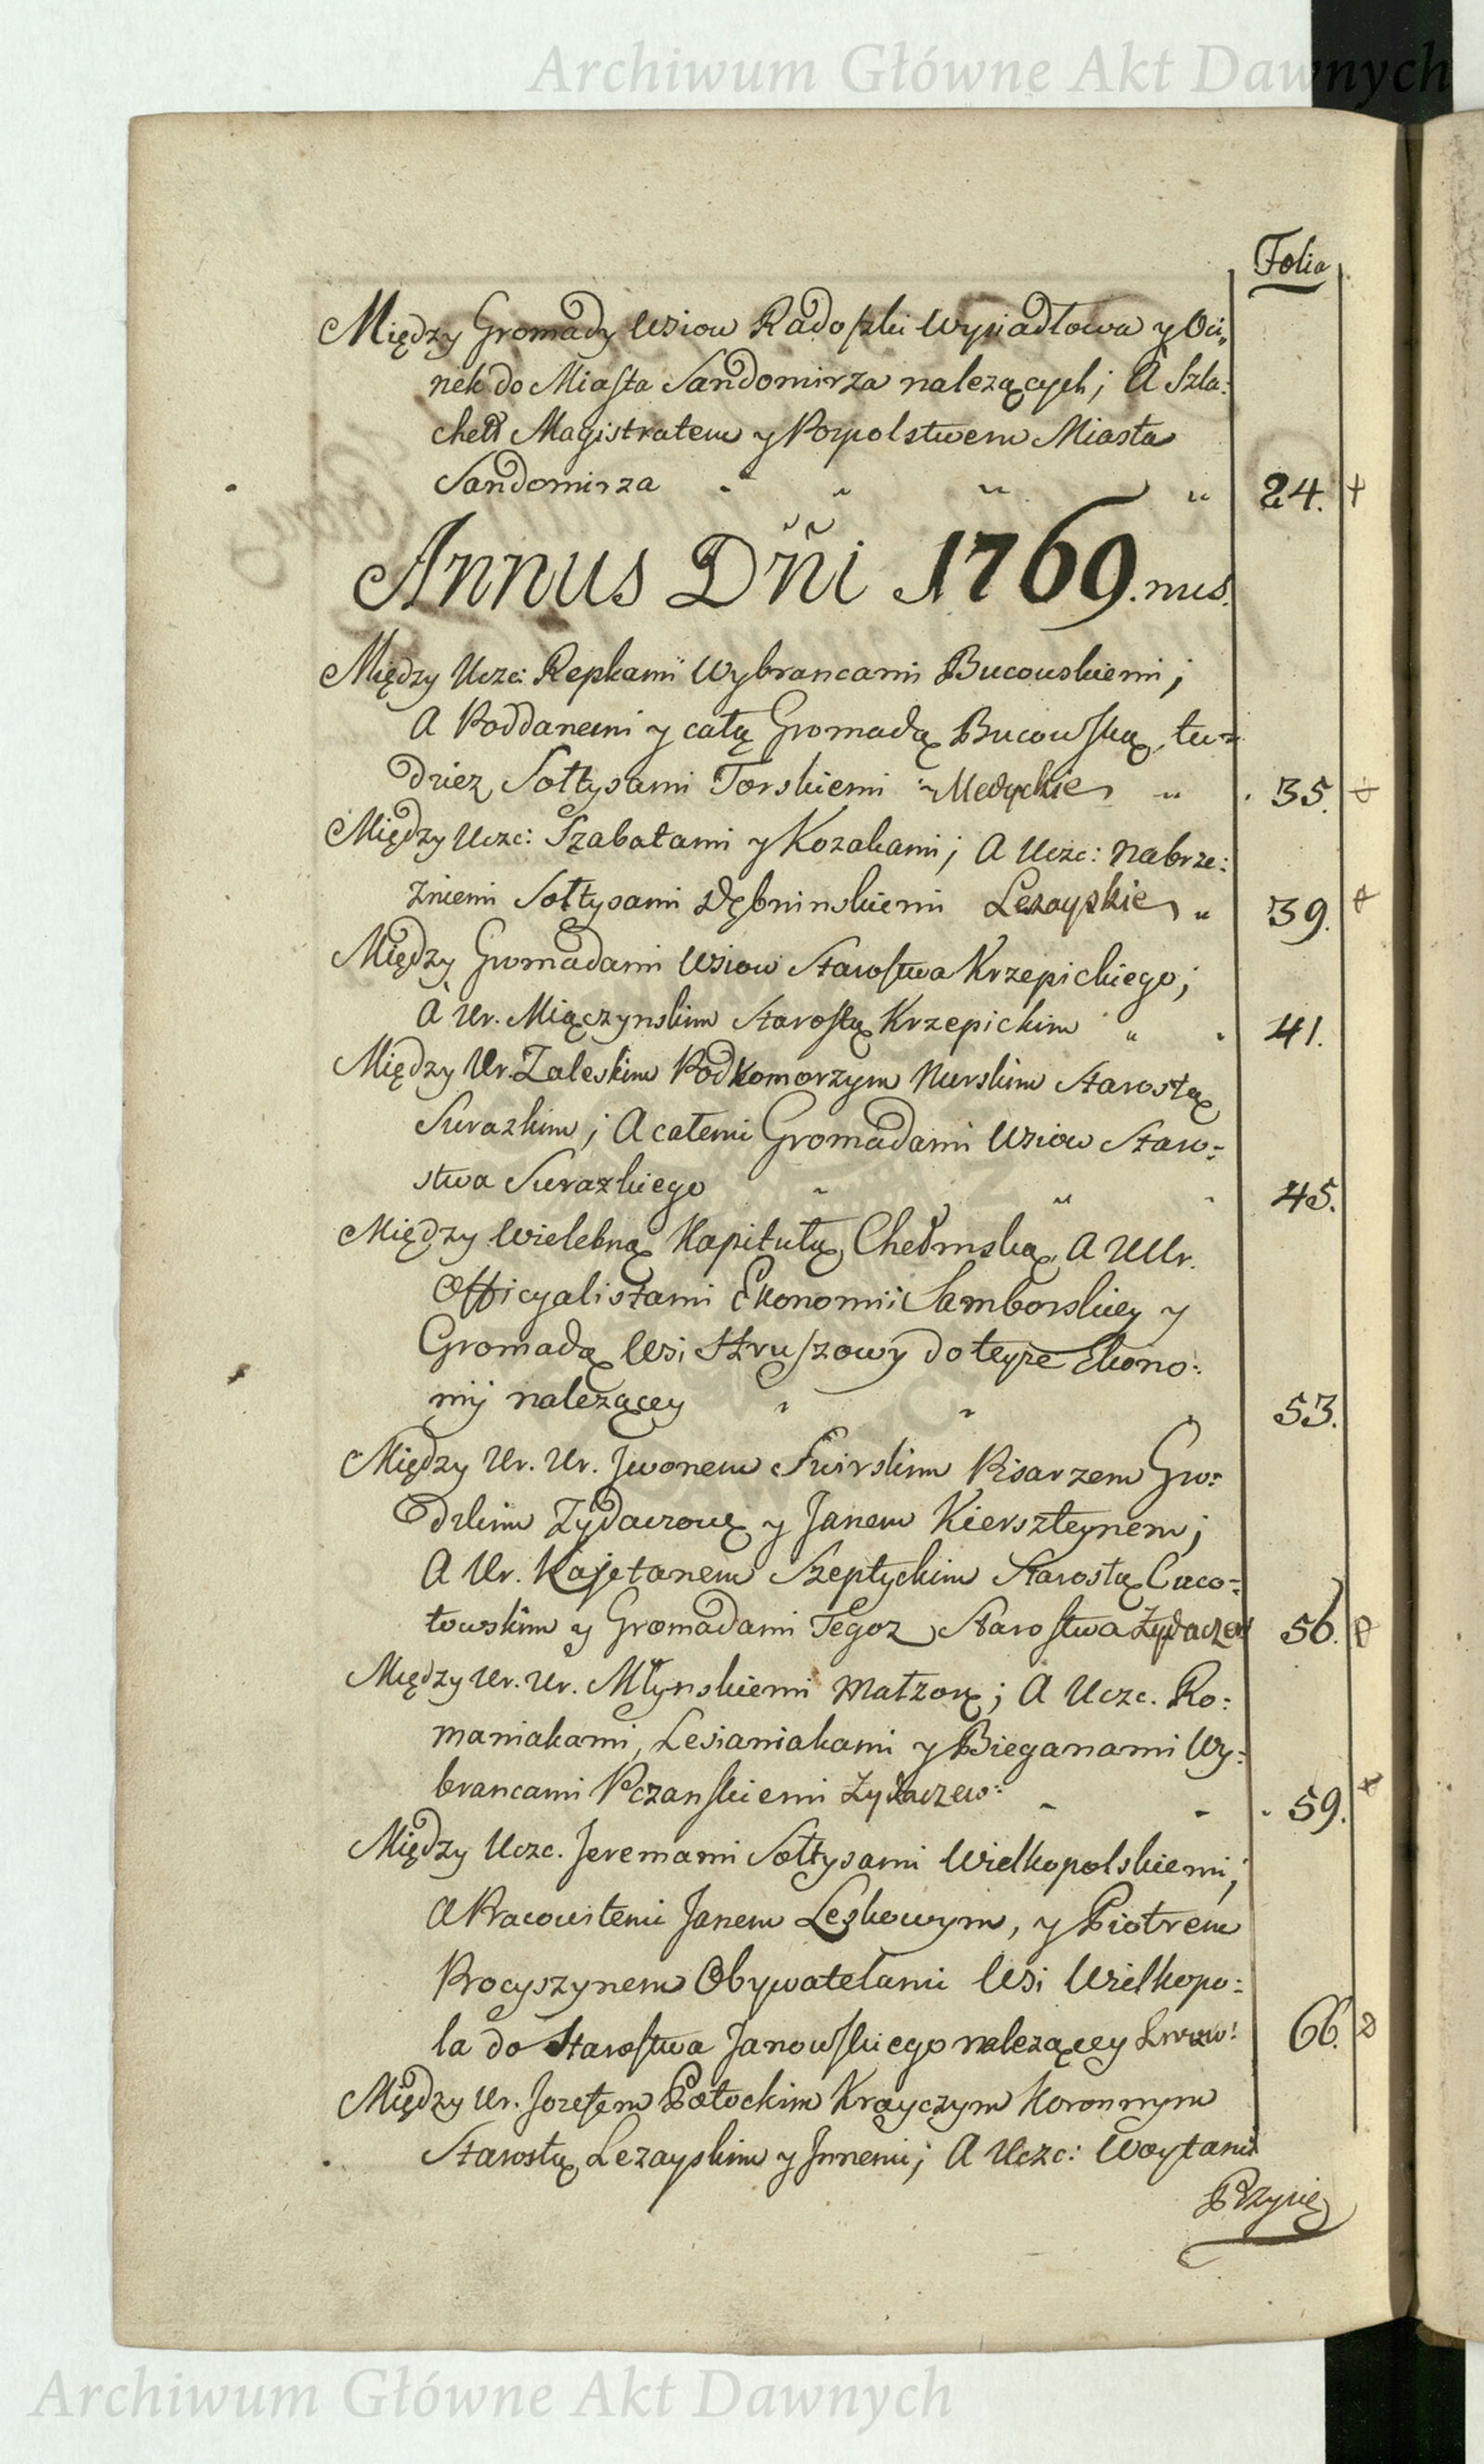 Archiwum Główne Akt Dawnych
Folia
Między Gromady Wsiow Radoszki Wysiadłowa y Oci„
nek do Miasta Sandomirza nalezących; A Szla:
chett Magistratem y Pospolstwem Miasta
Sandomirza 24.
Annus Dñi 1769.nus.
Między Ucze: Repkami Wybrancami Bucowskiemi;
A Poddanemi y całą Gromadą Bucowską, tu=
dziez Sołtysami Torskiemi Medyckie 35.
Między Uczc: Szabatami y Kozakami; A Uczc: Nabrze:
zniemi Sołtysami Dębninskiemi Lezayskie 39.
Między Gromadami Wsiow Starostwa Krzepickiego;
A Ur. Miączynskim Starostą Krzepickim 41.
Między Ur. Zaleskim Podkomorzym Nurskim Starostą
Surazkim; A całemi Gromadami Wsiow Staro:
stwa Surazkiego 45.
Między Wielebną Kapitułą Chełmską, A UUr.
Officyalistami Ekonomii Samborskiey y
Gromadą Wsi Struszowy do teyze Ekono:
mij nalezącey 53.
Między Ur. Ur. Jwonem Swirskim Pisarzem Gro:
dzkim Zydaczow y Janem Kierszteynem;
A Ur. Kajetanem Szeptyckim Starostą Cuco=
towskim y Gromadami Tegoz Starostwa Zydaczew 56.
Między Ur. Ur. Młynskiemi Małzon; A Uczc. Ro:
maniakami, Lesianiakami y Bieganami Wy:
brancami Pczanskiemi Zydaczew: 59.
Między Uczc. Jeremami Sołtysami Wielkopolskiemi;
A Pracowitemi Janem Leskowym, y Piotrem
Procyszynem Obywatelami Wsi Wielkopo:
la do Starostwa Janowskiego nalezącey Lwow: 66.
Między Ur. Jozefem Potockim Krayczym Koronnym
Starostą Lezayskim y Jnnemi; A Uczc: Woytami
Przysię
Archiwum Główne Akt Dawnych